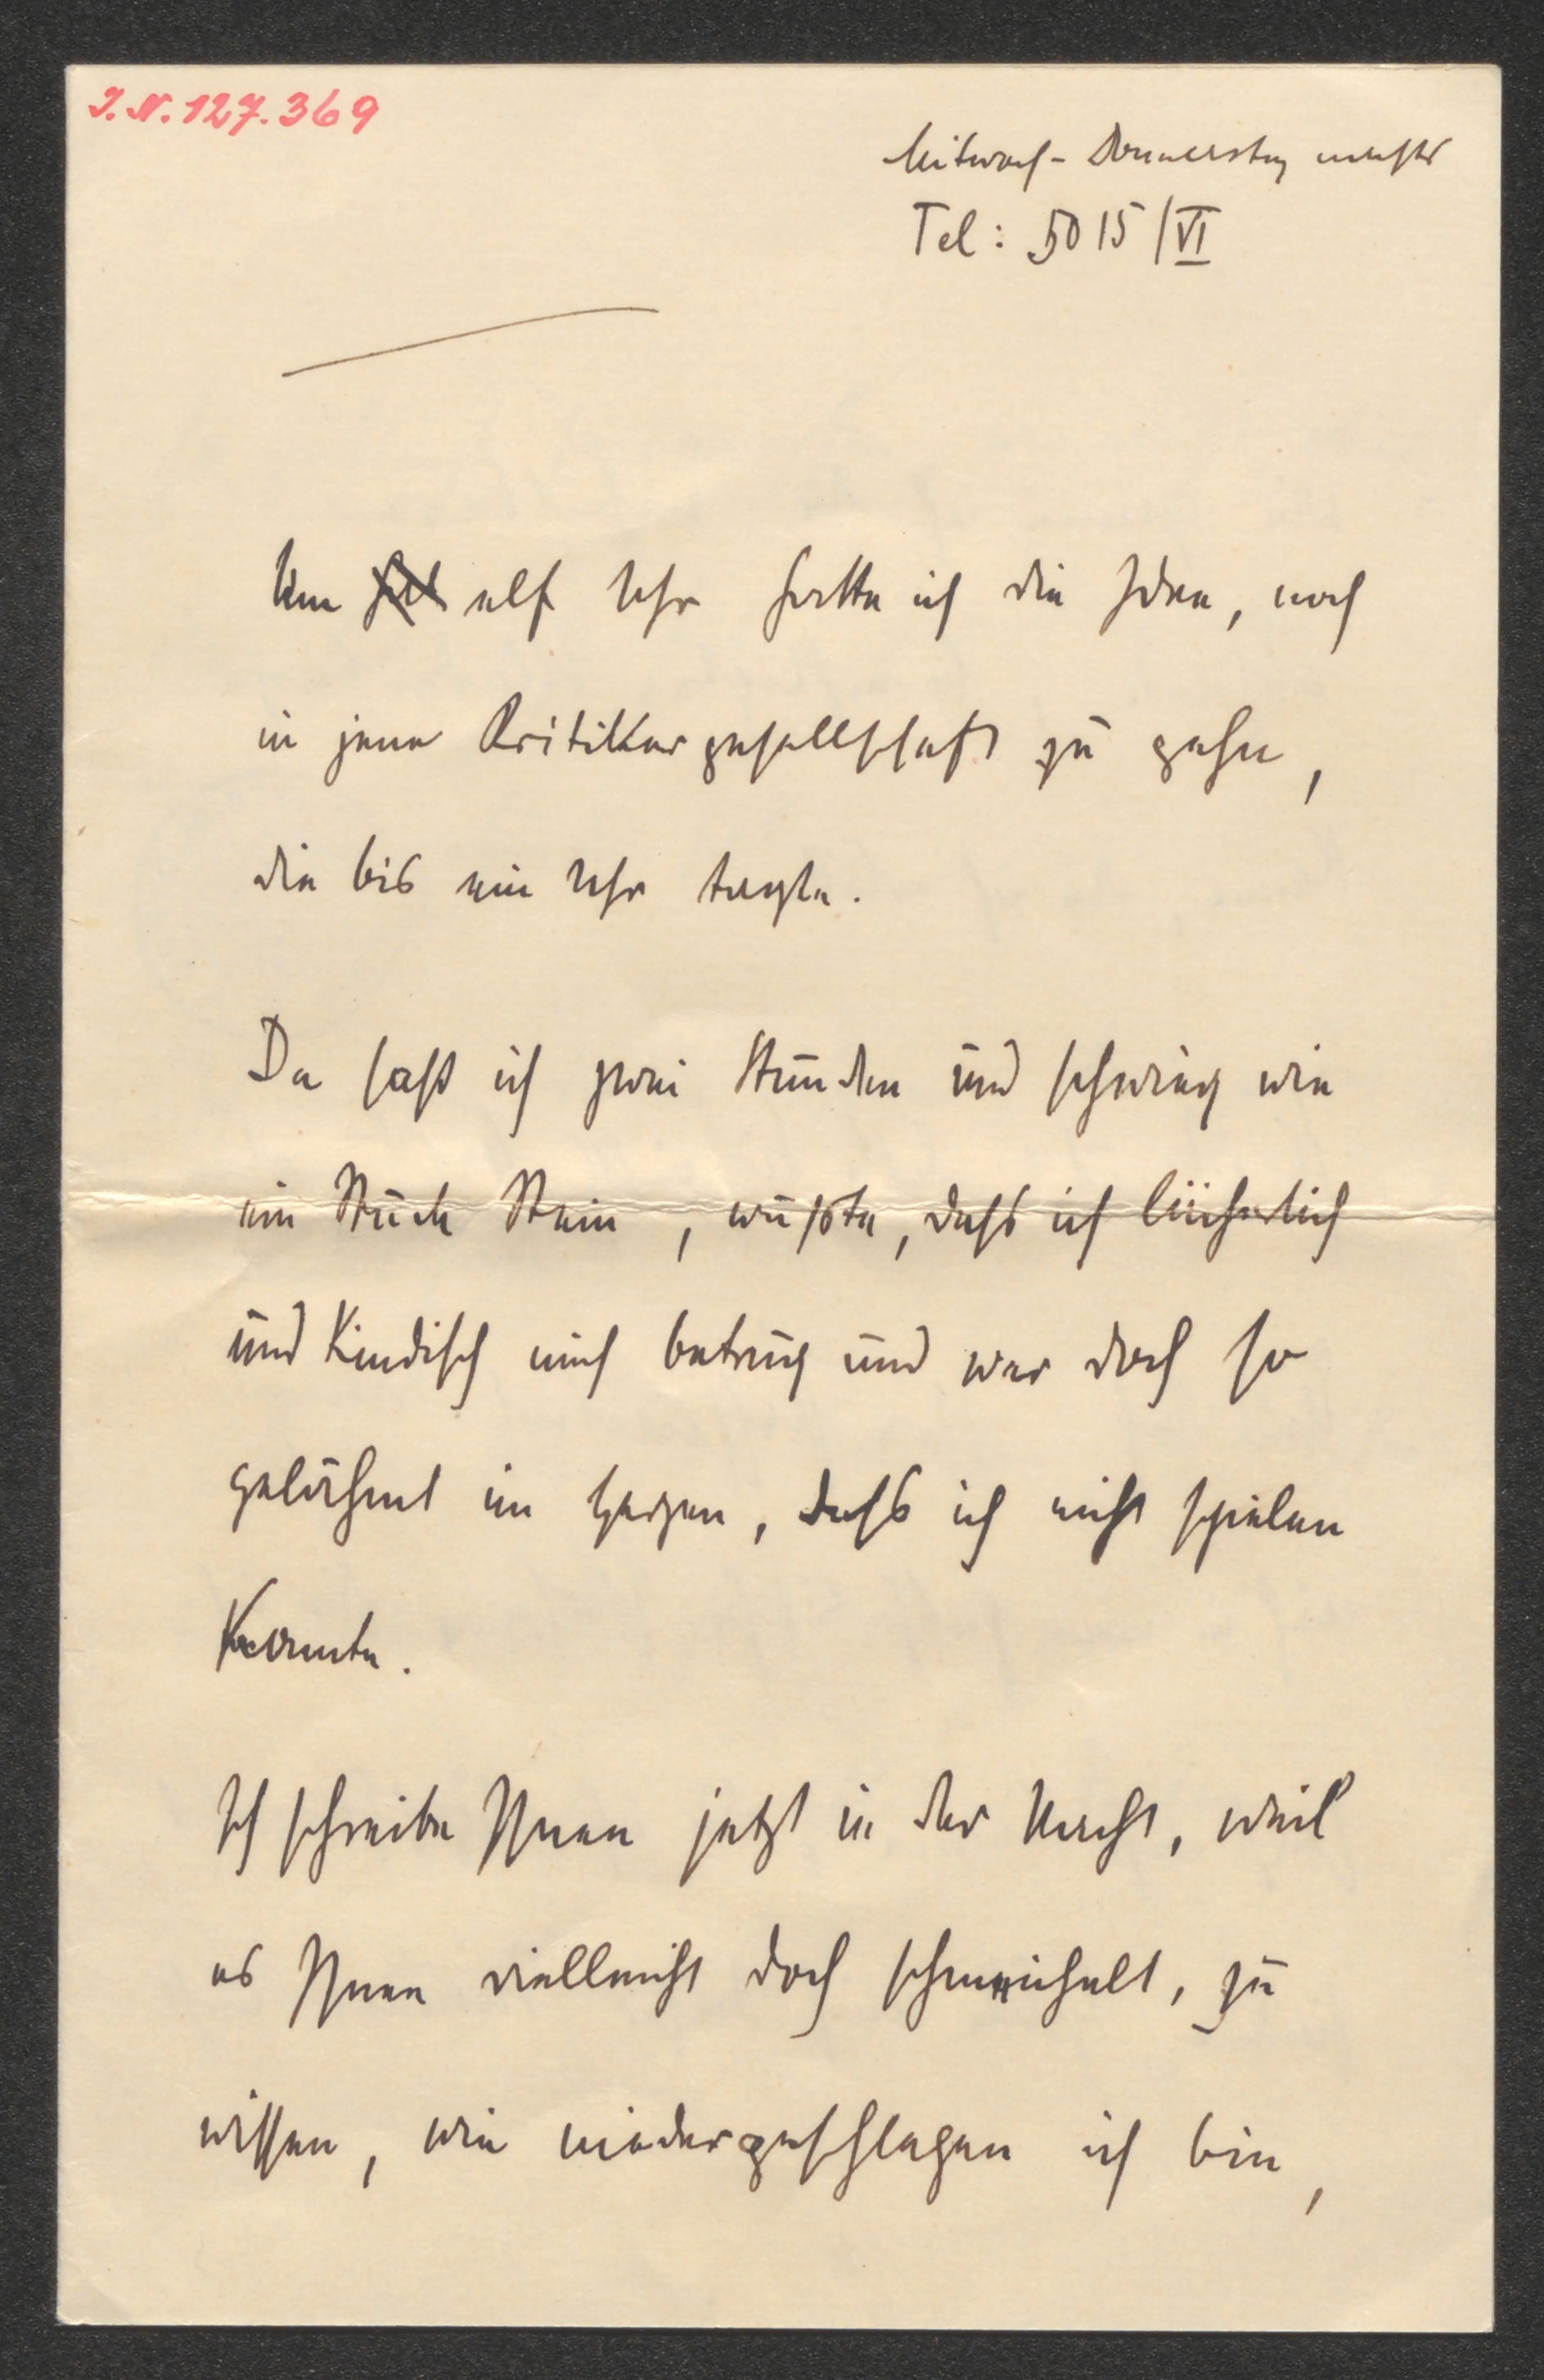 I.N. 127.369
Mitwoch - Donnerstag nachts
Tel: 5015/VI
Um elf Uhr hatte ich die Idee, noch
in jene Kritikergesellschaft zu gehn,
die bis ein Uhr tagte.
Da saß ich zwei Stunden und schwieg wie
ein Stück Stein, wußte, dass ich lächerlich
und kindisch mich betrug und war doch so
gelähmt im Herzen, dass ich nicht spielen
konnte.
Ich schreibe Ihnen jetzt in der Nacht, weil
es Ihnen vielleicht doch schmeichelt, zu
wissen, wie niedergeschlagen ich bin,